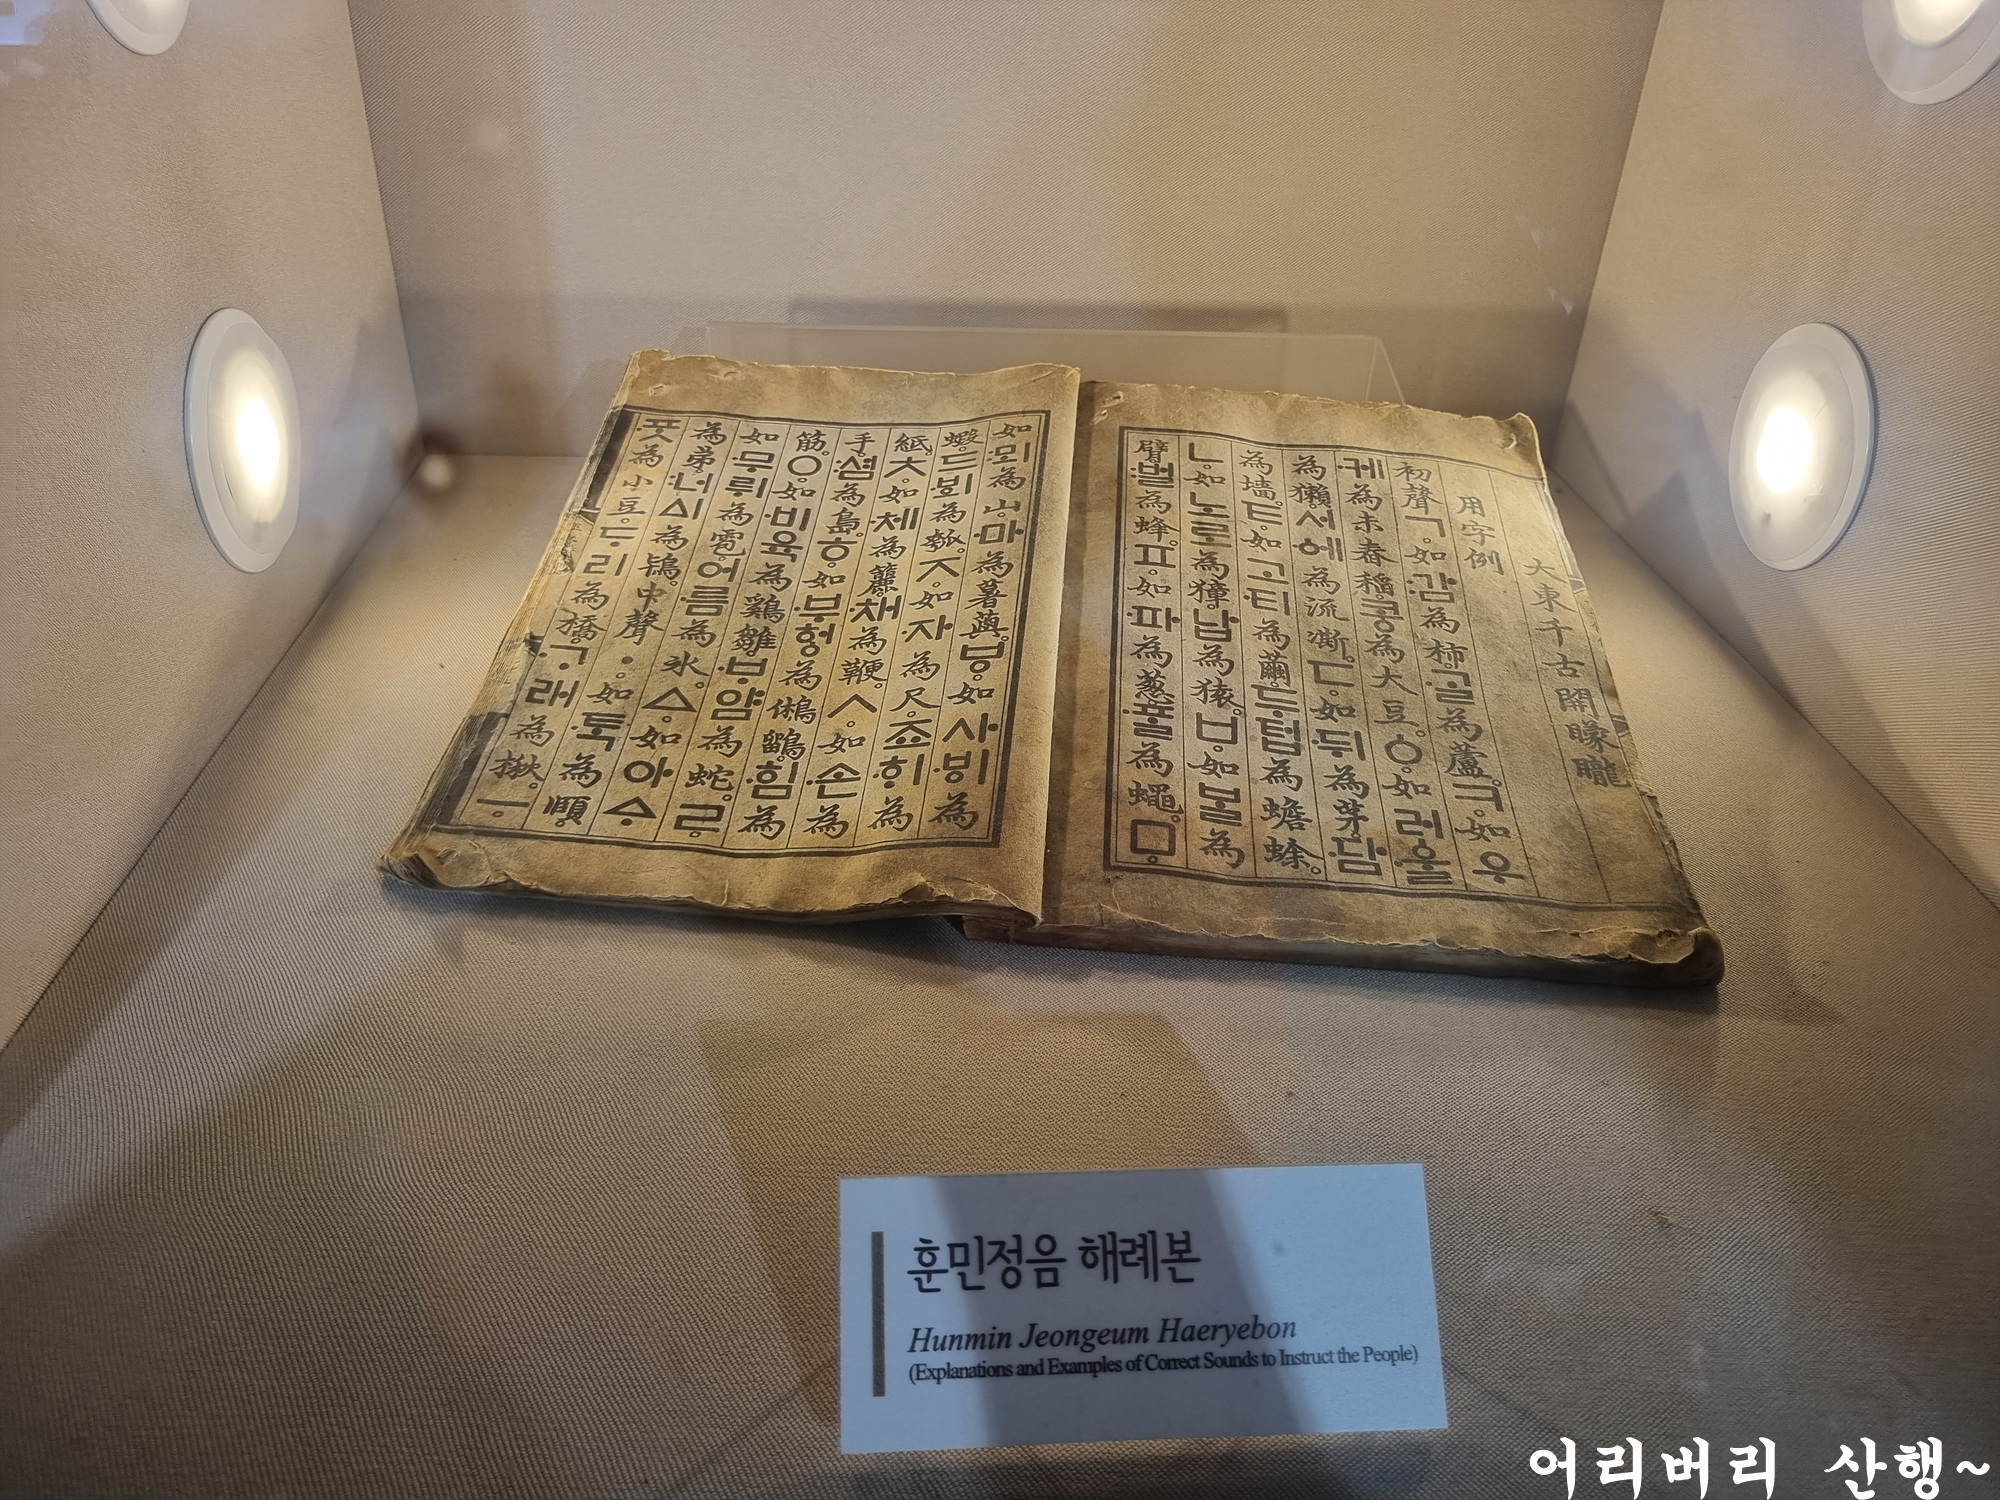 大東千古開矇矓
用字例
初聲ㄱ。如감為柿。ᄀᆞᆯ為蘆。ㅋ。如우
케為未舂稻。콩為大豆。ㆁ。如러울
為獺。서에為流凘。ㄷ。如뒤為茅。담
為墻。ㅌ。如고티為繭。두텁為蟾蜍。
ㄴ。如노로為獐。납為猿。ㅂ。如ᄇᆞᆯ為
臂。벌為蜂。ㅍ。如파為葱。ᄑᆞᆯ為蠅。ㅁ。
如뫼為山。마為薯藇。ㅸ。如사ᄫᅵ為
蝦。드ᄫᅴ為瓠。ㅈ。如자為尺。죠ᄒᆡ為
紙。ㅊ。如체為籭。채為鞭。ㅅ。如손為
手。셤為島。ㅎ。如부헝為鵂鶹。힘為
筋。ㅇ。如비육為鷄雛。ᄇᆞ얌為蛇。ㄹ。
如무뤼為雹。어름為氷。ㅿ。如아ᅀᆞ
為弟。너ᅀᅵ為鴇。中聲ㆍ。如ᄐᆞᆨ為頤。
ᄑᆞᆺ為小豆。ᄃᆞ리為橋。ᄀᆞ래為楸。ㅡ。
훈민정음 해례본
Hunmin Jeongeum Haeryebon
(Explanations and Examples of Correct Sounds to Instruct the People)
어리버리 산행~